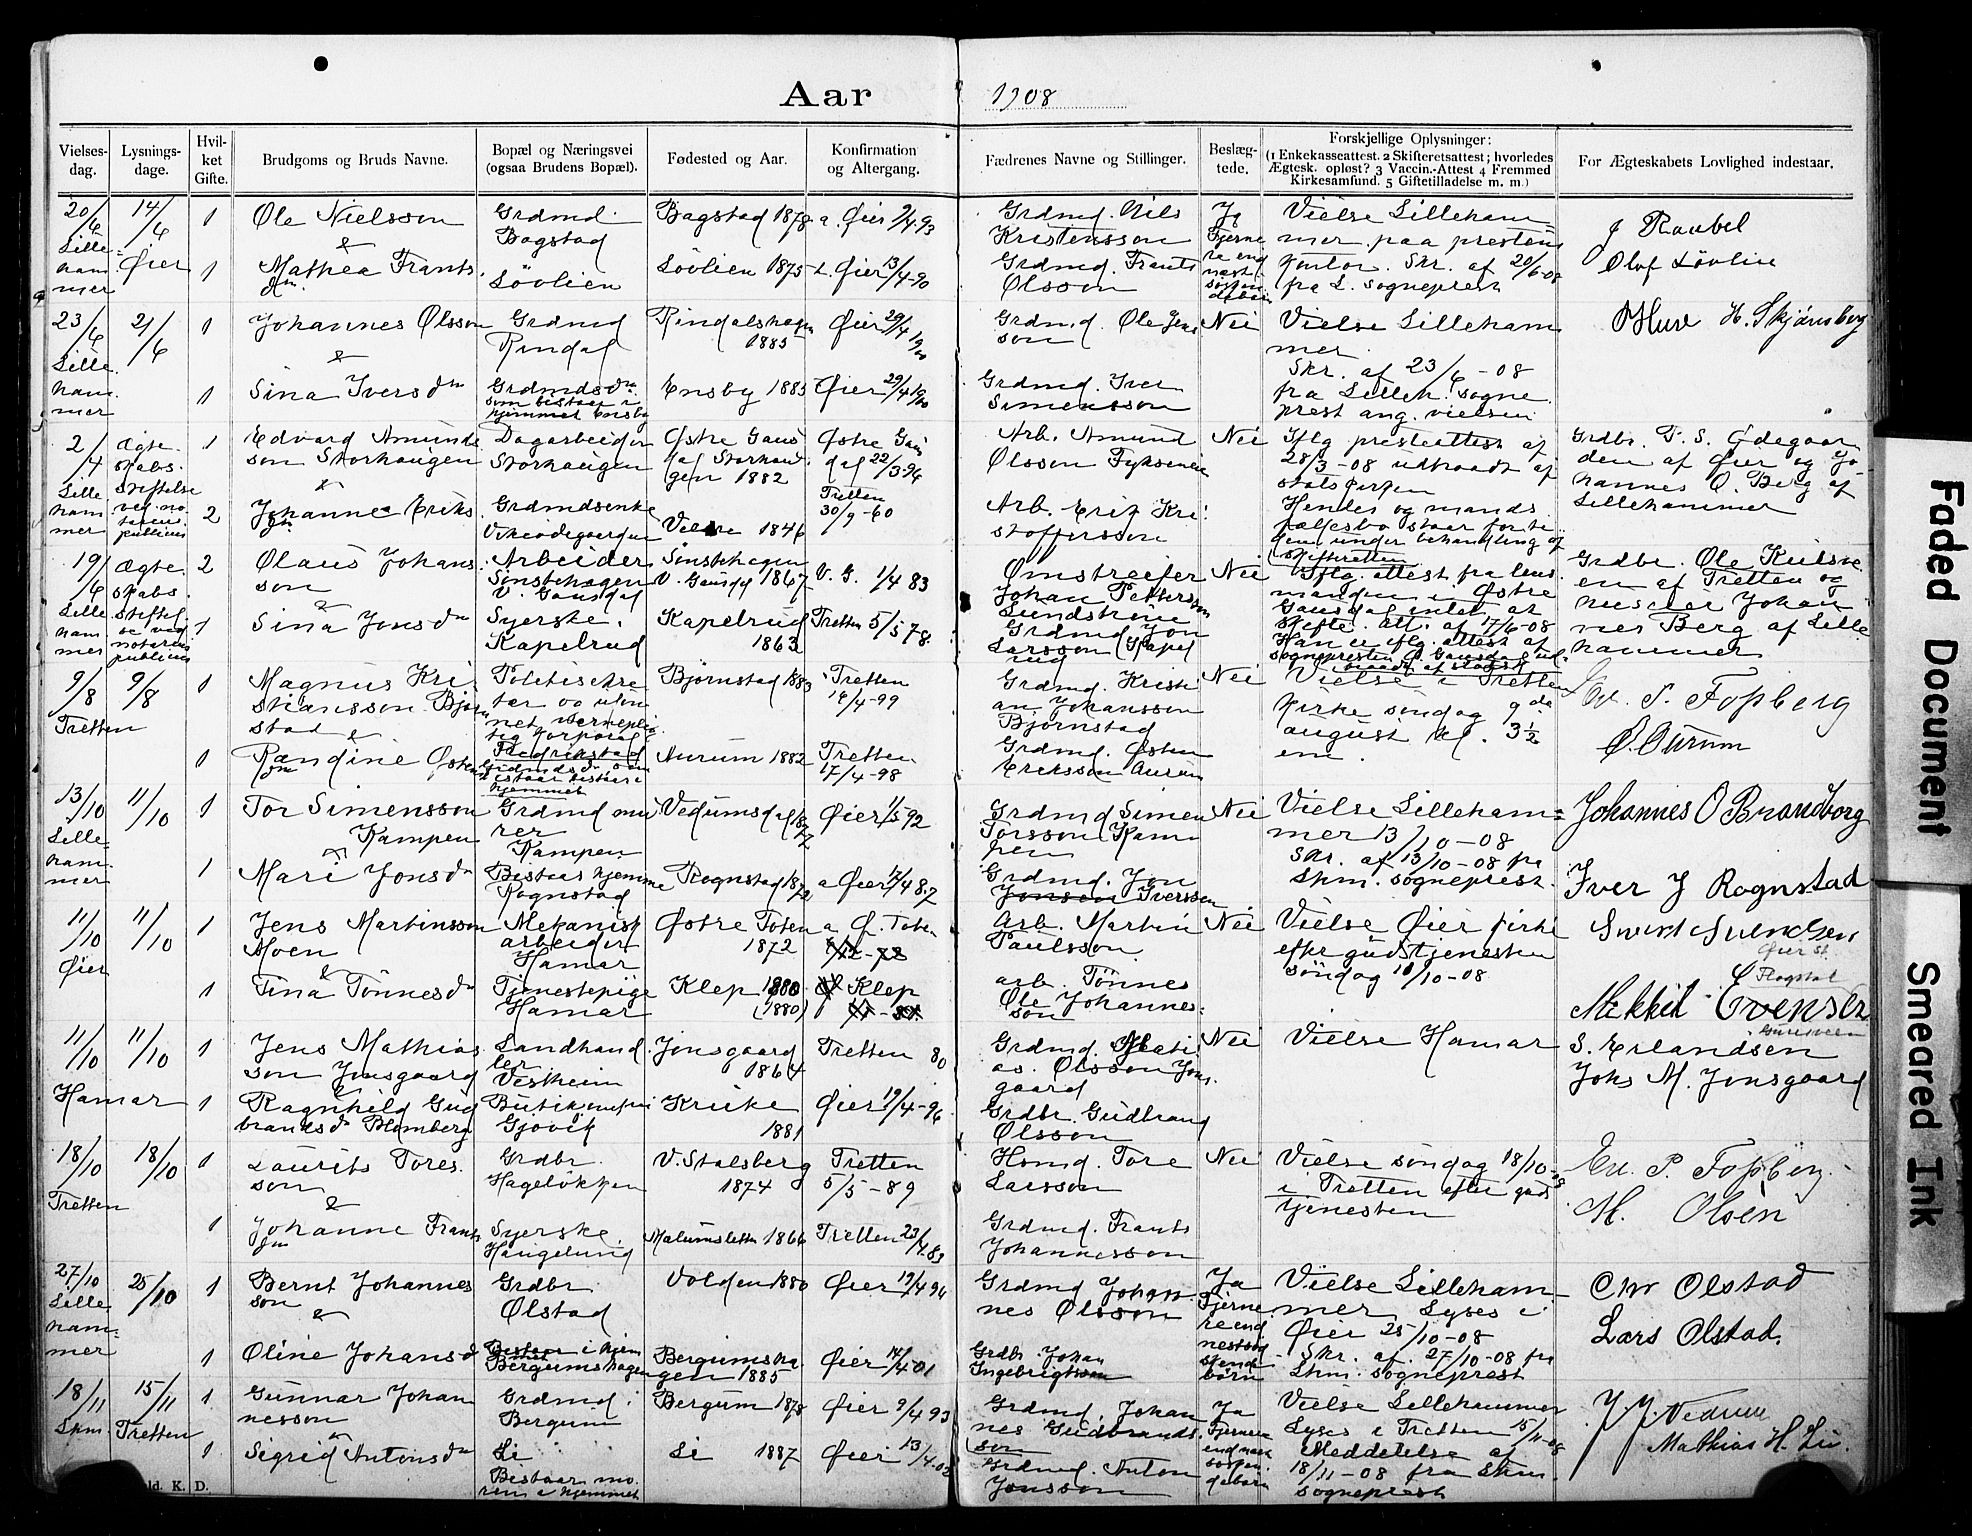 Aar 1908
Vielses-dag. Lysnings-dage. Hvil-ket Gifte. Brudgoms og Bruds Navne. Bopæl og Næringsvei (ogsaa Brudens Bopæl). Fødested og Aar. Konfirmation og Altergang. Fædrenes Navne og Stillinger. Beslæg-tede. Forskjellige Oplysninger: (1 Enkekasseattest. 2 Skifteretsattest; hvorledes Ægtesk. opløst? 3 Vaccin.-Attest 4 Fremmed Kirkesamfund. 5 Giftetilladelse m. m.) For Ægteskabets Lovlighed indestaar.
20/6 Lille-ham mer 14/6 Øier 1 Ole Nielsson & Grdmd. Bagstad Bagstad 1878 a. Øier 9/4 93 Grdmd. Nils Kristensson Ja Fjerne re end næst søsken debørn Vielse Lilleham mer paa prestens kontor. Skr. af 20/6-08 fra L. sogneprest J Raabel
1 Mathea Frants dtr. Løvlien Løvlien 1875 L. Øier 13/4-90 Grdmd. Frants Olsson Olof Løvlien
23/6 Lille ham mer 21/6 1 Johannes Olsson & Grdmd Rindal Rindalshagen 1885 Øier 29/4 1900 Grdmd. Ole Jens son Nei Vielse Lilleham mer Skr. af 23/6-08 fra Lilleh. sogne prest ang. vielsen H. Skjønsberg
1 Sina Iversdtr Grdmdsdtr som bestaar i hjemmet Ensby Ensby 1885 Øier 29/4 1900 Grdmd. Iver Simensson
2/4 Lille ham mer ægte skabs stiftelse ved no tarius publicus 1 Edvard Amunds son Storhaugen & Dagarbeider Storhaugen Østre Gaus dal Storhau gen 1882 Østre Gaus dal 22/3 96 Arb. Amund Olsson Nei Iflg. presteattest af 28/3-08 udtraadt af statskirken Grdbr. P. S. Ødegaar den af Øier og Jo hannes O. Berg af Lillehammer
2 Johanne Eriks dtr Grdmdsenke Tretten 30/9-60 1846 Arb. Erik Kri stoffersson Hendes og mands fællesbo staar forti den under behandling af skifteretten
19/6 Lille ham mer ægte skabs stiftel se ved notarius publicus 2 Olaus Johans son & Arbeider Sinstehagen V. Gausdal Sinstehagen V. Gausdal 1867 V. G. 1/4 83 Omstreifer Johan Petterson Lundstrøm Nei Iflg. attest fra lens manden i Østre Gausdal intet at skifte. Att. af 17/6-08 Han er iflg. attest af sognepresten Grdbr. Ole Kulsve en af Tretten og husmer Johan nes Berg af Lille hammer
1 Sina Jonsdtr Syerske Kapelrud Kapelrud 1863 Tretten 5/5 78 Grdmd Jon Larsson Kapel rud
9/8 Tretten 9/8 1 Magnus Kri stiansson Bjørn stad & Politisekre tær og udøn net verneplig tig korporal Fredrikstad Bjørnstad 1883 Tretten 14/4-99 Grdmd. Kristi an Johansson Bjørnstad Nei Vielse i Tretten kirke søndag 9de august kl. 3½ em. Ev. P. Fossberg
1 Randine Østens dtr Grdmdsdtr som bestaar i hjemmet Aurum 1882 Tretten 17/4-98 Grdmd. Østen Eriksson Aurum Ø. Aurum
13/10 Lille ham mer 11/10 1 Tor Simensson Kampen & Grdmd mu rer Kampen Vedumsdal 1877 Øier 1/5 92 Grdmd Simen Torsson Kam pen Nei Vielse Lilleham= mer 13/10-08 Skr. af 13/10-08 fra Lhm. sogneprest. Johannes O Brandborg
1 Mari Jonsdtr Bestaar hjemme Rognstad Rognstad 1872 a Øier 17/4 87 Grdmd. Jon Iversson Iver J Rognstad
11/10 Øier 11/10 1 Jens Martinsson Moen & Mekanisk arbeider Hamar Østre Toten 1872 a Ø. Toten Arb. Martin Paulsson Nei Vielse Øier kirke efter gudstjenesten søndag 11/10-08 Øier St.
1 Tina Tønnesdtr Tjenestepige Hamar Klep 1880 (1880) Klep Arb. Tønnes Ole Johannes= son Mekkel Evensen
11/10 Hamar 11/10 1 Jens Mathias son Jonsgaard & Landhand ler Vestheim Jonsgaard 1864 Tretten 80 Grdmd. Mati as Olsson Jons. gaard Nei Vielse Hamar S. Erlandsen
1 Ragnhild Gud brandsdtr Blomberg Gjøvik Kruke 1881 Øier 19/4-96 Grdbr. Gudbrand Olsson Johs M. Jonsgaard
18/10 Tretten 18/10 1 Laurits Tores son & Grdbr. Hageløkken V. Stalsberg 1874 Tretten 5/5-89 Hsmd. Tore Larsson Nei Vielse søndag 18/10-08 i Tretten efter guds tjenesten Ev. P. Fossberg
1 Johanne Frants dtr Syerske Haugelund 1866 Tretten 23/4 83 Grdmd. Frants Johannesson M. Olsen
27/10 Lille ham= mer 25/10 1 Bernt Johannes son & Grdbr Olstad Volden 1880 Øier 19/4 94 Grdmd Johan nes Olsson Ja Fjerne re end nestsød skende børn Vielse Lilleham= mer Lyses i Øier 25/10-08 Skr. af. 27/10-08 fra Lhm. sogneprest Chr Olstad
1 Oline Johansd Bestaar i hjem met Bergumshagen Bergumsha gen 1885 Øier 14/4-01 Grdbr. Johan Ingebrigtsson Lars Olstad.
18/11 Lhm. 15/11 Tretten 1 Gunnar Johan nesson & Grdmd. Bergum Bergum 1878 Øier 9/4 93 Grdmd. Johan nes Gudbrands son Ja Fjernere end næst søsken debørn Vielse Lillehammer Lyses i Tretten 15/11-08 Meddelelse af 18/11-08 fra Lhm. sogneprest
1 Sigrid Antonsdtr Li Bestaar mo ren i hjemmet Li 1887 Øier 13/4-02 Grdmd. Anton Jonsson Mathias H. Lie.
ld. K. D.
Faded Document
Smeared Ink